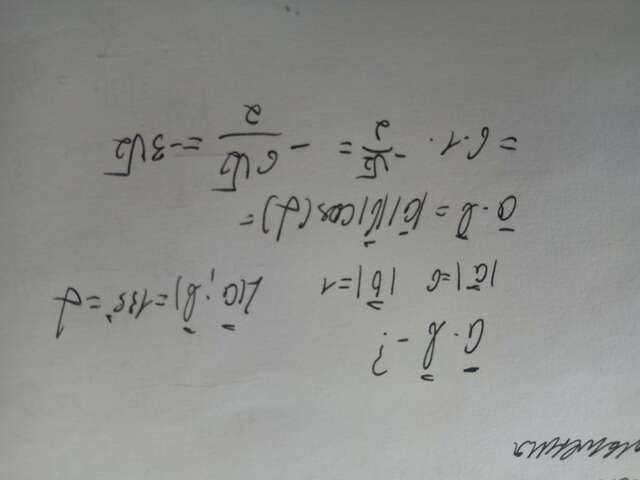 a̅ · b̅ - ?
|a̅|=6 |b̅|=1 ∠(a̅; b̅)=135°=α
a̅ · b̅ = |a̅||b̅|cos(α)=
= 6·1 · -√2/2 = - 6√2/2 = -3√2